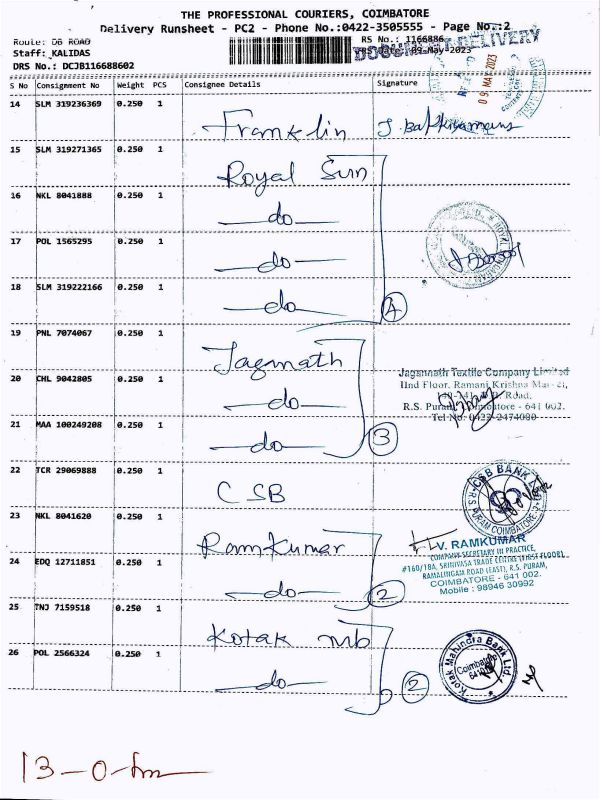 THE PROFESSIONAL COURIERS, COIMBATORE
Delivery Runsheet - PC2 - Phone No.:0422-3505555 - Page No.:2
Route: DB ROAD
RS No.: 1166886
Staff: KALIDAS
09-May-2023
DOCUMENT DELIVERY
DRS No.: DCJB116688602
09 MAY 2023
S No Consignment No Weight PCS Consignee Details Signature
14 SLM 319236369 0.250 1 Franklin
15 SLM 319271365 0.250 1 Royal Sun
16 NKL 8041888 0.250 1 —do—
17 POL 1565295 0.250 1 —do—
18 SLM 319222166 0.250 1 —do— 4
19 PNL 7074067 0.250 1 Jagannath
20 CHL 9042805 0.250 1 —do—
Jagannath Textile Company Limited
IInd Floor, Ramani Krishna
Road,
R.S. Puram, Coimbatore - 641 002.
Tel No: 0422-2474080
21 MAA 100249208 0.250 1 —do— 3
22 TCR 29069888 0.250 1 CSB
CSB BANK
R.S. PURAM COIMBATORE-2
23 NKL 8041620 0.250 1 Ramkumar
V. RAMKUMAR
COMPANY SECRETARY IN PRACTICE,
#160/18A, SRINIVASA TRADE CENTRE (FIRST FLOOR)
RAMALINGAM ROAD (EAST), R.S. PURAM,
COIMBATORE - 641 002.
Mobile : 98946 30992
24 EDQ 12711851 0.250 1 —do— 2
25 TNJ 7159518 0.250 1 Kotak mb
26 POL 2566324 0.250 1 —do— 2
Kotak Mahindra Bank Ltd.
Coimbatore
13-0-